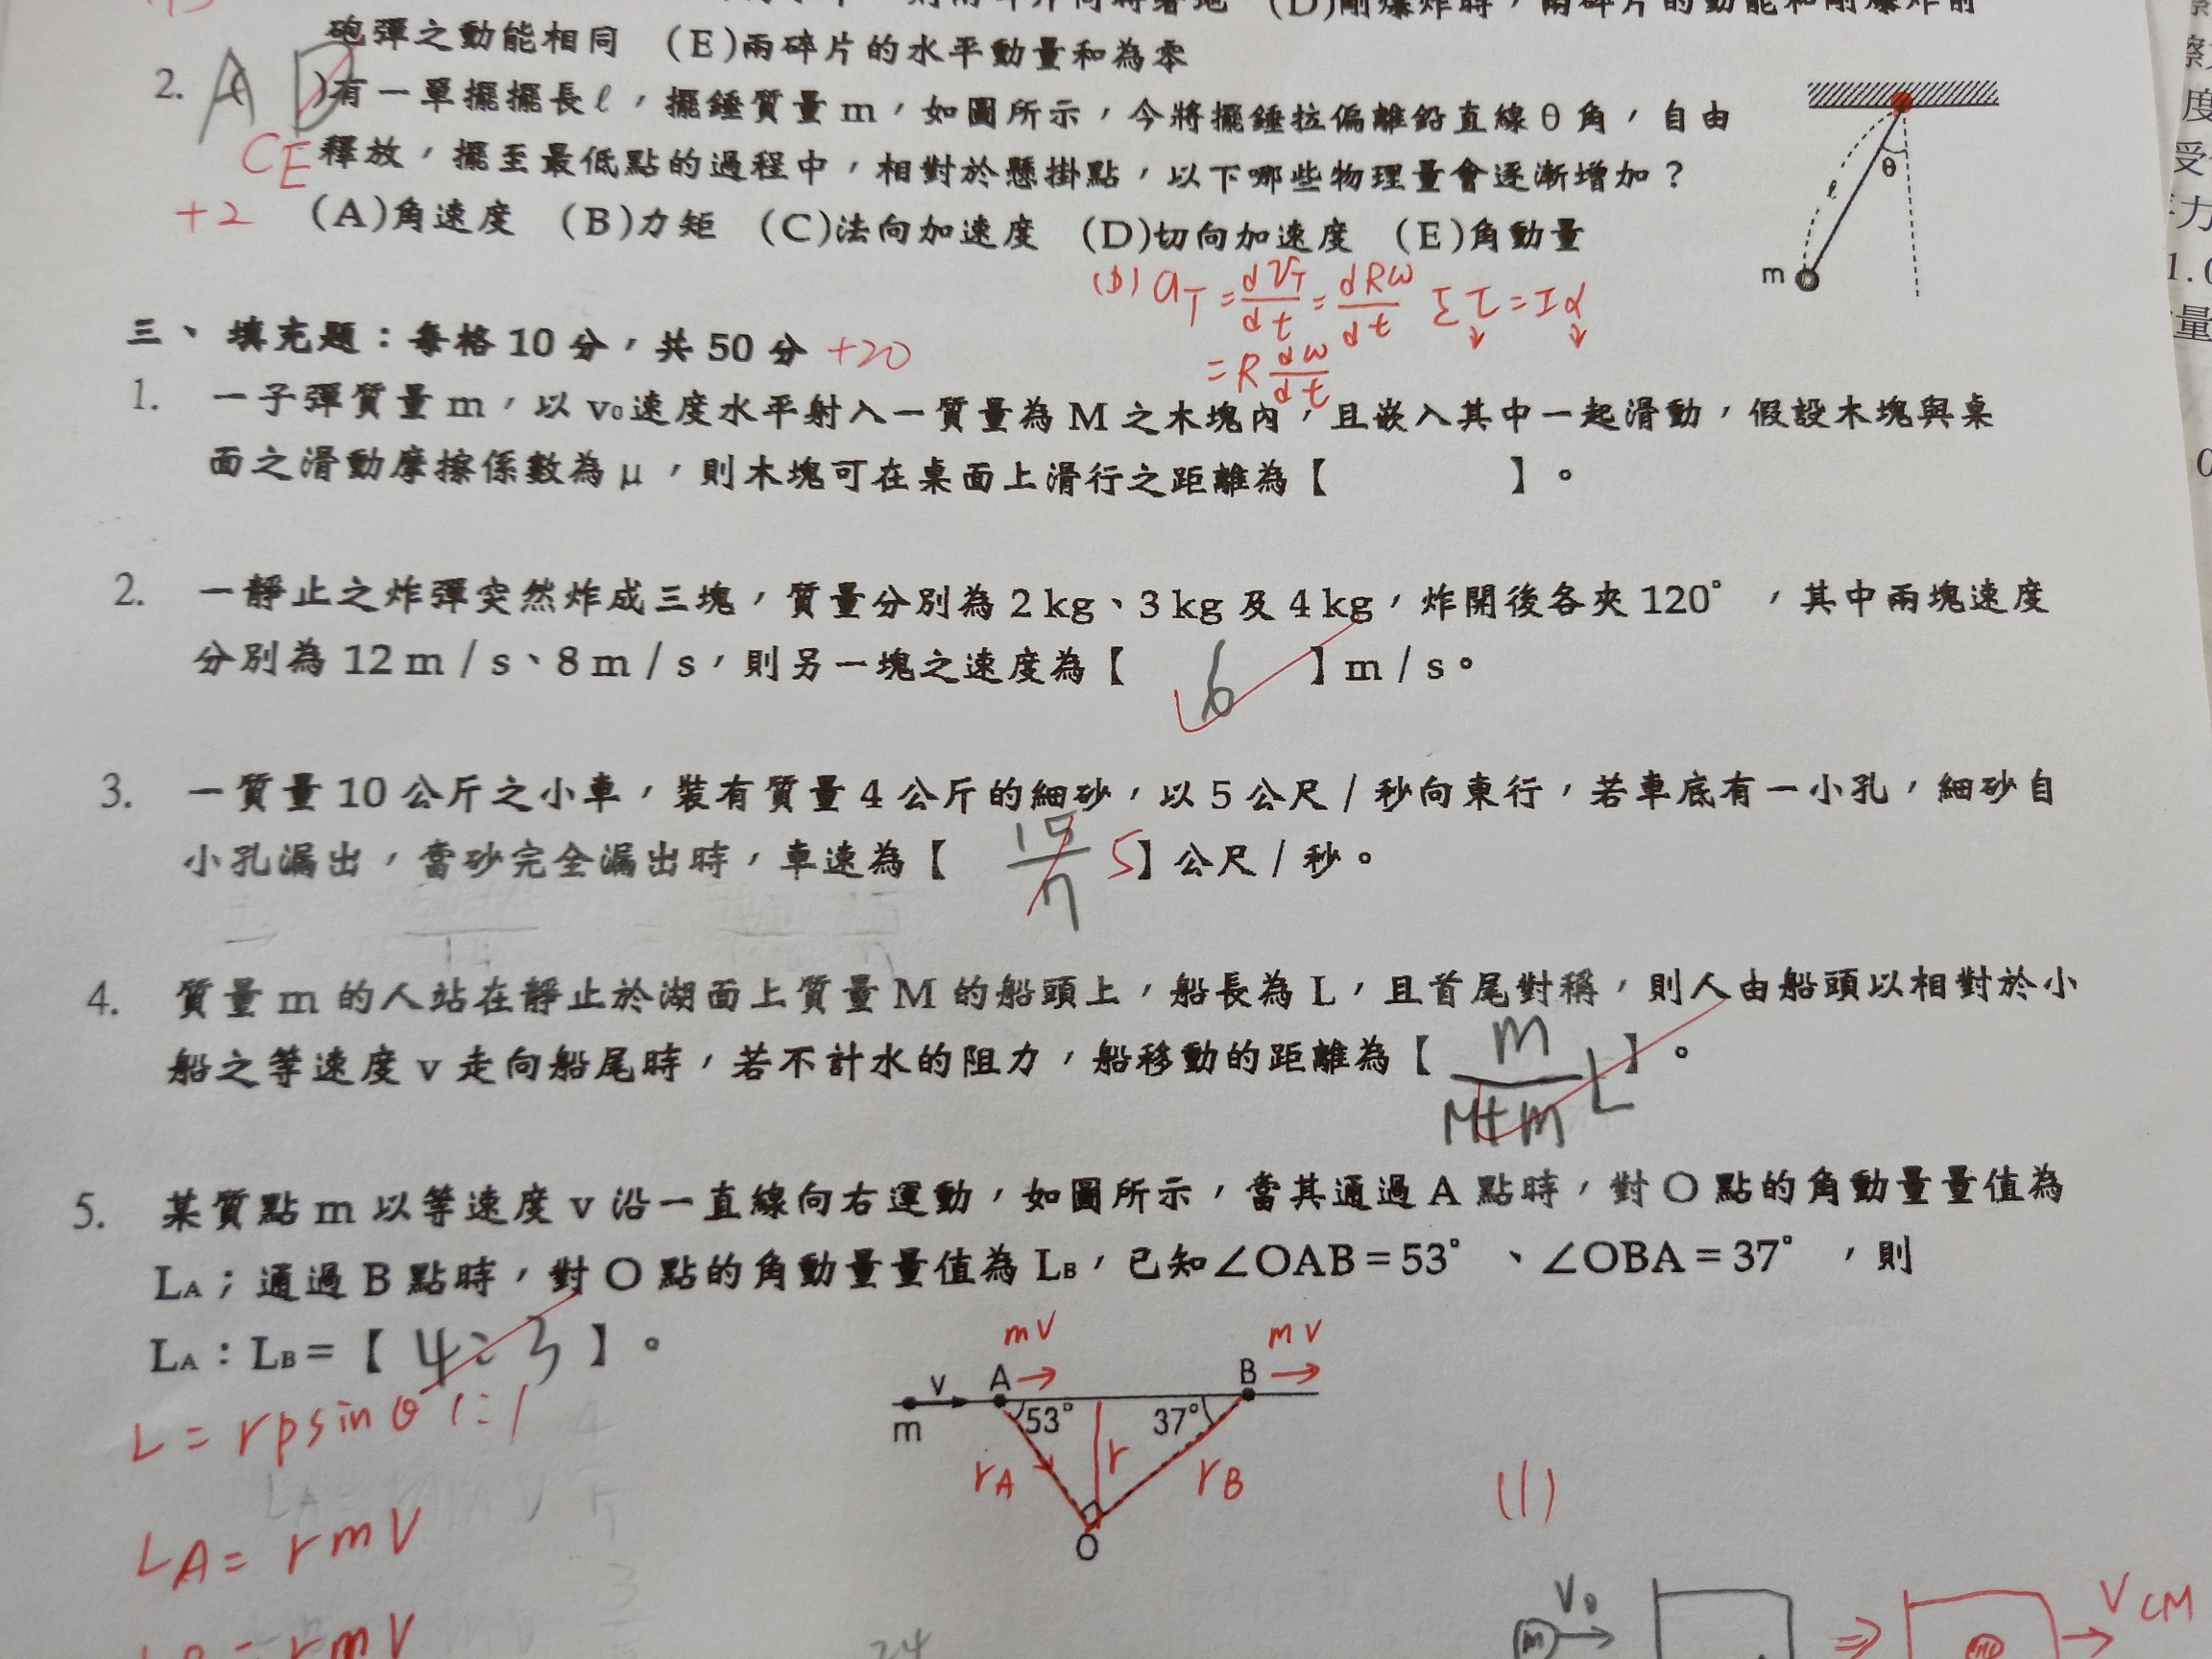 則兩碎片同時著地 (D)剛爆炸時，兩碎片的動能和剛爆炸前
砲彈之動能相同 (E)兩碎片的水平動量和為零
2. A D )有一單擺擺長ℓ，擺錘質量m，如圖所示，今將擺錘拉偏離鉛直線θ角，自由
CE 釋放，擺至最低點的過程中，相對於懸掛點，以下哪些物理量會逐漸增加？
+2 (A)角速度 (B)力矩 (C)法向加速度 (D)切向加速度 (E)角動量
θ
ℓ
m
(D) aT = dVT/dt = dRω/dt Στ = Iα
= R dω/dt
三、填充題：每格10分，共50分 +20
1. 一子彈質量m，以v₀速度水平射入一質量為M之木塊內，且嵌入其中一起滑動，假設木塊與桌
面之滑動摩擦係數為μ，則木塊可在桌面上滑行之距離為【 】。
2. 一靜止之炸彈突然炸成三塊，質量分別為2 kg、3 kg及4 kg，炸開後各夾120°，其中兩塊速度
分別為12 m / s、8 m / s，則另一塊之速度為【 6 】m / s。
3. 一質量10公斤之小車，裝有質量4公斤的細砂，以5公尺 / 秒向東行，若車底有一小孔，細砂自
小孔漏出，當砂完全漏出時，車速為【 15/7 5】公尺 / 秒。
4. 質量m的人站在靜止於湖面上質量M的船頭上，船長為L，且首尾對稱，則人由船頭以相對於小
船之等速度v走向船尾時，若不計水的阻力，船移動的距離為【 m/(M+m) L 】。
5. 某質點m以等速度v沿一直線向右運動，如圖所示，當其通過A點時，對O點的角動量量值為
LA；通過B點時，對O點的角動量量值為LB，已知∠OAB＝53°、∠OBA＝37°，則
LA：LB＝【 4:3 】。
mV mV
v A B
m 53° 37°
L = rp sinθ 1:1
rA r rB
O
LA = rmV
(1)
V0 VCM
m
= rmV
24